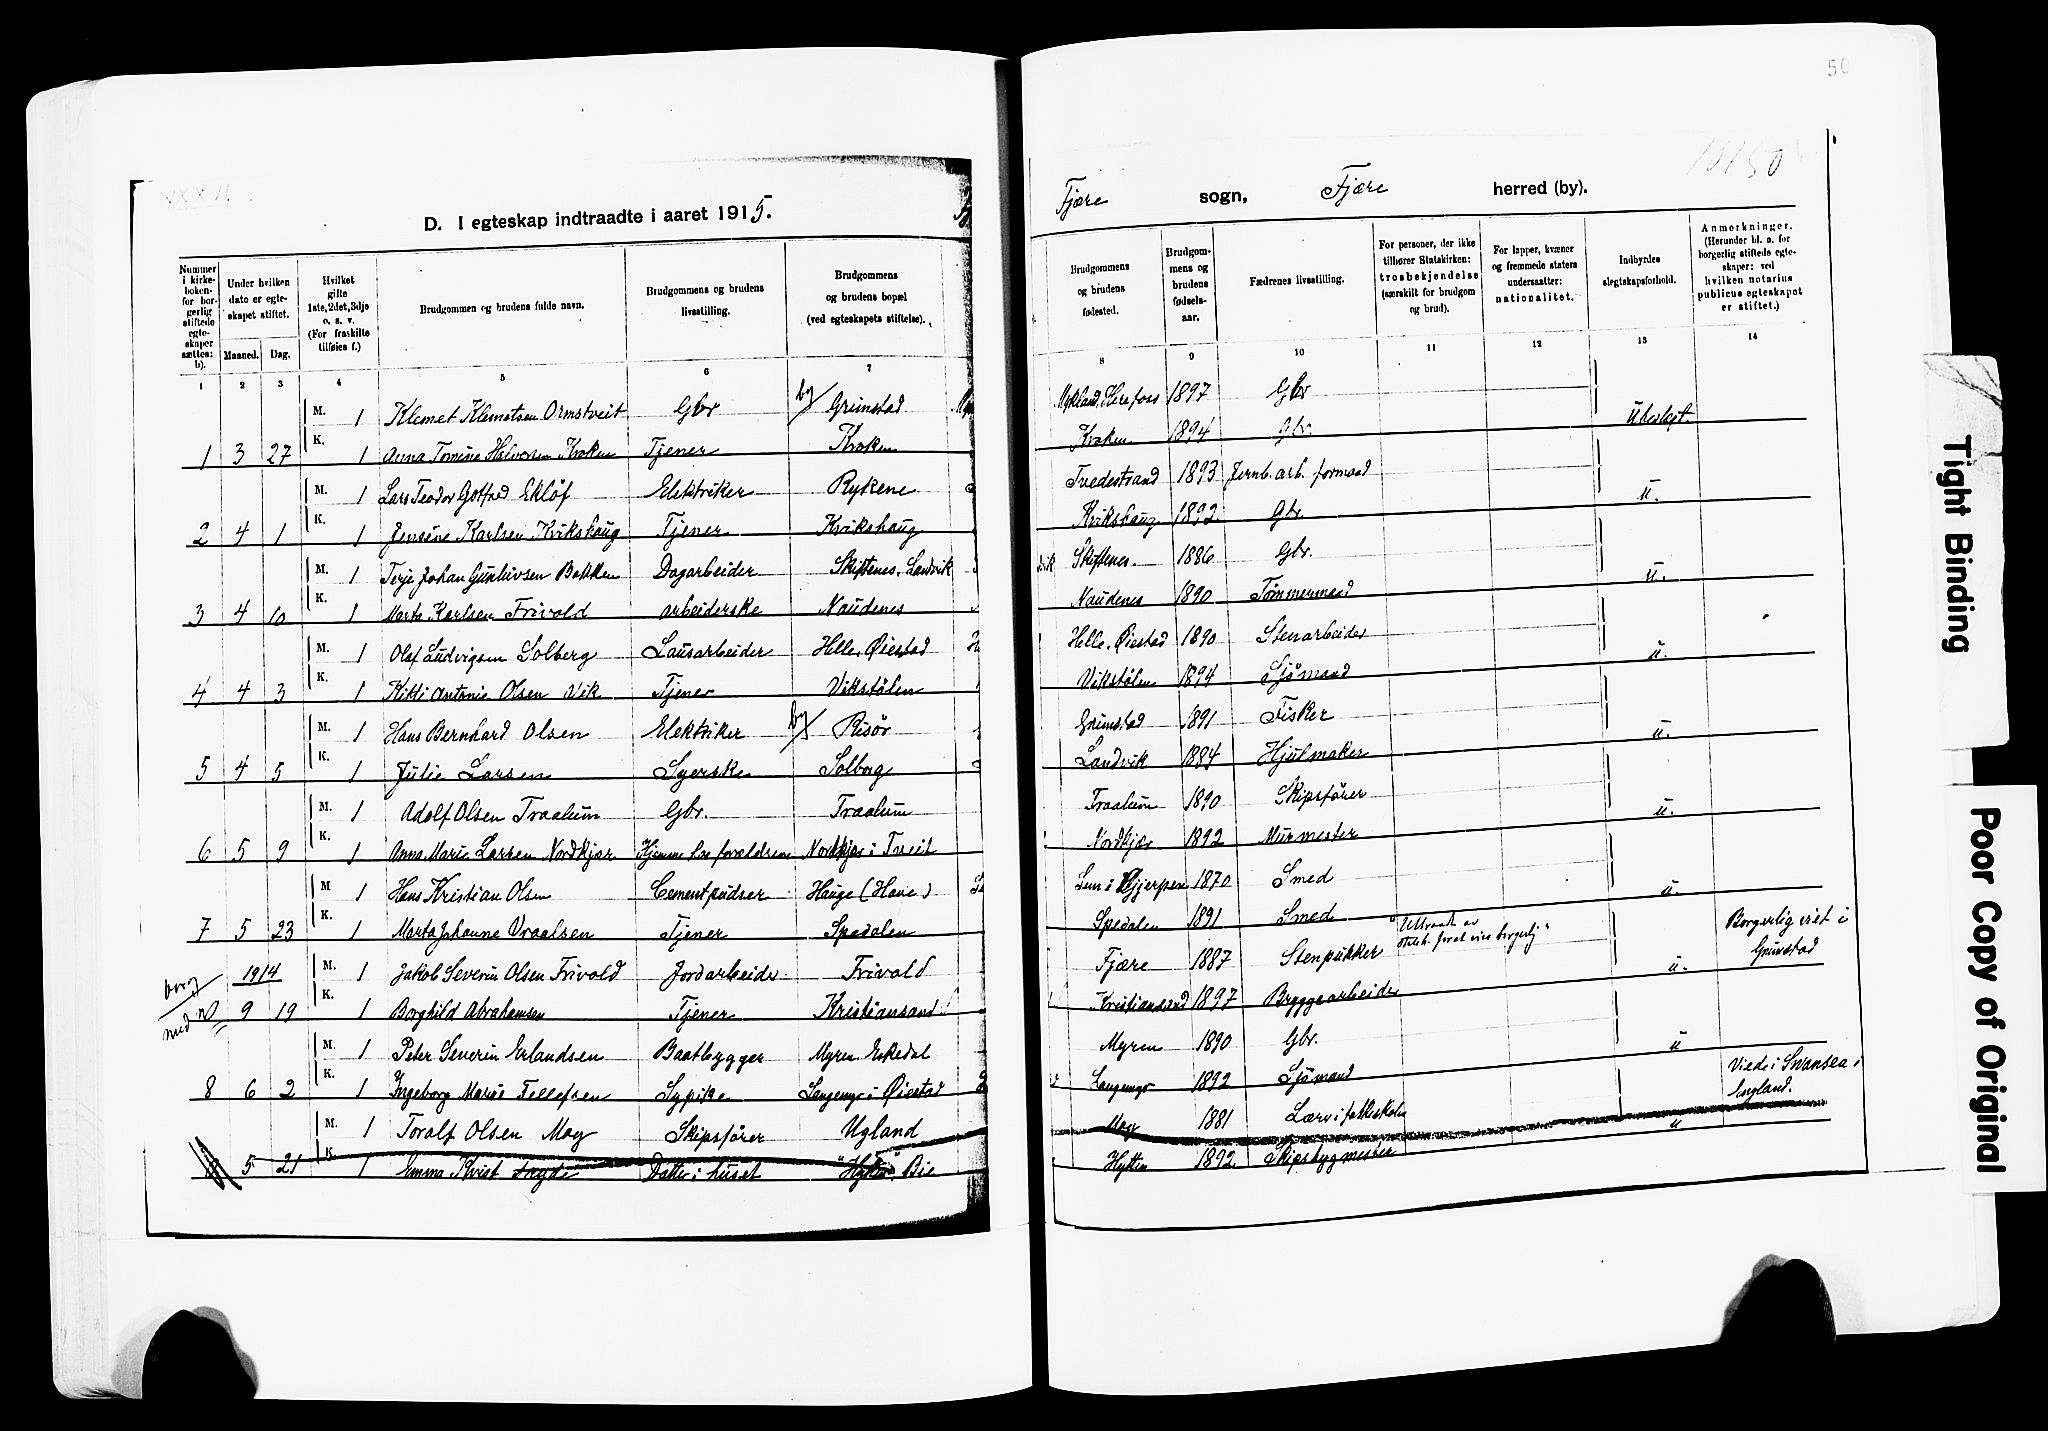 50
D. I egteskap indtraadte i aaret 1915.
Fjære sogn, Fjære herred (by).
Nummer i kirke-boken- for bor-gerlig stiftede egte-skaper sættes: b).
Under hvilken dato er egte-skapet stiftet.
Maaned. Dag.
Hvilket gifte 1ste, 2det, 3dje o. s. v. (For fraskilte tilføies f.)
Brudgommen og brudens fulde navn.
Brudgommens og brudens livsstilling.
Brudgommens og brudens bopæl (ved egteskapets stiftelse).
Brudgommens og brudens fødested.
Brudgom-mens og brudens fødsels-aar.
Fædrenes livsstilling.
For personer, der ikke tilhører Statskirken: trosbekjendelse (særskilt for brudgom og brud).
For lapper, kvæner og fremmede staters undersaatter: nationalitet.
Indbyrdes slegtskapsforhold.
Anmerkninger. (Herunder bl. a. for borgerlig stiftede egte-skaper: ved hvilken notarius publicus egteskapet er stiftet.)
1 2 3 4 5 6 7 8 9 10 11 12 13 14
M. 1 Klemet Klemetsen Ormstveit Gbr by Grimstad Mykland, Herefoss 1897 Gbr
1 3 27 K. 1 Anna Tomine Halvorsen Kroken Tjener Kroken Kroken 1894 Gbr. Ubeslegt.
M. 1 Lars Teodor Gotfred Eklöf Elektriker Rykene Tvedestrand 1893 Jernb. arb. formand
2 4 1 K. 1 Jensine Karlsen Kvikshaug Tjener Kvikshaug Kvikshaug 1892 Gbr. u.
M. 1 Terje Johan Gunluvsen Bakken Dagarbeider Skiftenes, Landvik Skiftenes. 1886 Gbr.
3 4 10 K. 1 Marta Karlsen Frivold arbeiderske Naudenes Naudenes 1890 Tømmermand u.
M. 1 Olaf Ludvigsen Solberg Lausarbeider Helle, Øiestad Helle, Øiestad 1890 Stenarbeider
4 4 3 K. 1 Kikki Antonie Olsen Vik Tjener Vikstølen Vikstølen 1894 Sjömand u.
M. 1 Hans Bernhard Olsen Elektriker by Risör Grimstad 1891 Fisker
5 4 5 K. 1 Julie Larsen Syerske Solborg Landvik 1884 Hjulmaker u.
M. 1 Adolf Olsen Traalum Gbr. Traalum Traalum 1890 Skipsfører
6 5 9 K. 1 Anna Marie Larsen Nordkjær Hjemme hos forældrene Nordkjær i Tveit Nordkjær 1892 Murmester u.
M 1 Hans Kristian Olsen Cementpudser Hauge (Have) i Gjerpen 1870 Smed
7 5 23 K. 1 Marta Johanne Vraalsen Tjener Spedalen Spedalen 1891 Smed u.
borg 1914 M. 1 Jakob Severin Olsen Frivold Jordarbeider Frivold Fjære 1887 Stenpukker Borgerlig viet i Grimstad
9 19 K. 1 Borghild Abrahamsen Tjener Kristiansand Kristiansand 1897 Bryggearbeider u.
M. 1 Peter Severin Erlandsen Baatbygger Myren, Eskedal Myren 1890 Gbr.
8 6 2 K. 1 Ingeborg Marie Tellefsen Sypike Langemyr i Øiestad Langemyr 1892 Sjömand u Viede i Swansea i England.
M. 1 Toralf Olsen Moy Skipsfører Ugland Moy 1881 Lærer i folkeskolen
5 21 K. 1 Emma Kvist Datter i huset "Hytten", Bie Hytten 1892. Skipsbygmester u
Tight Binding
Poor Copy of Original